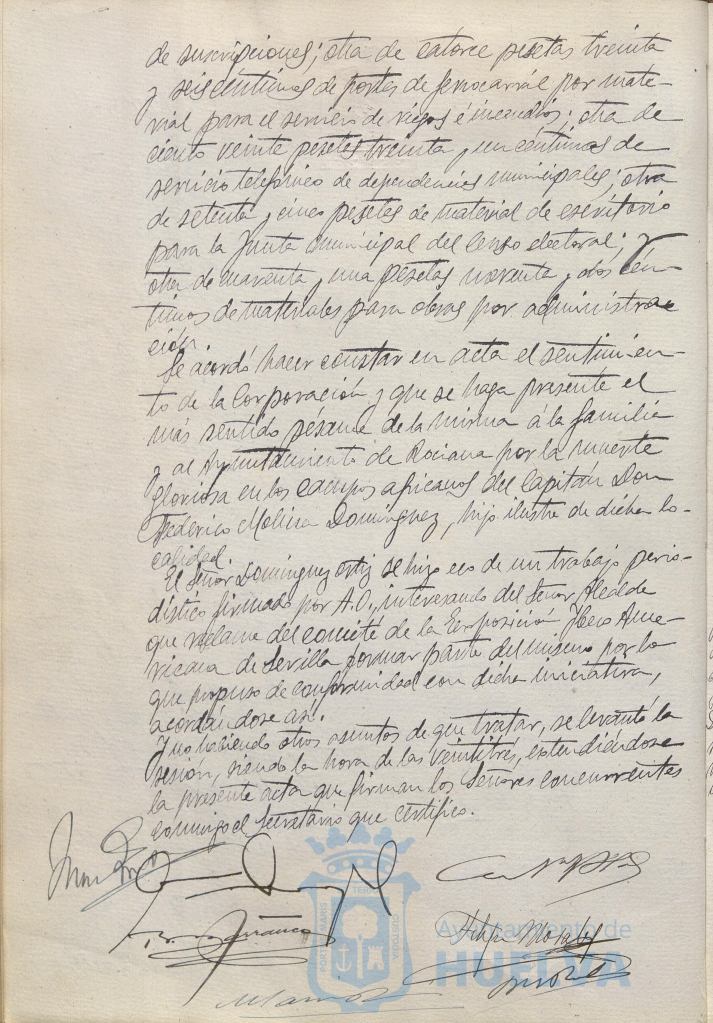 de suscripciones; otra de catorce pesetas treinta
y seis céntimos de portes de ferrocarril por mate-
rial para el servicio de riegos é incendios; otra de
ciento veinte pesetas treinta y un céntimos de
servicio telefónico de dependencias municipales; otra
de setenta y cinco pesetas de material de escritorio
para la Junta municipal del Censo electoral; y
otra de cuarenta y una pesetas noventa y dos cén-
timos de materiales para obras por administra-
ción.
Se acordó hacer constar en acta el sentimien-
to de la Corporación y que se haga presente el
más sentido pésame de la misma á la familia
y al Ayuntamiento de Rociana por la muerte
gloriosa en los campos africanos del Capitán Don
Federico Molina Domínguez, hijo ilustre de dicha lo-
calidad.
El Señor Domínguez Ortiz se hizo eco de un trabajo perio-
dístico firmado por A.O., interesando del Señor Alcalde
que reclame del comité de la Exposición Ibero Ame-
ricana de Sevilla formar parte del mismo por lo
que propuso de conformidad con dicha iniciativa,
acordándose así.
Y no habiendo otros asuntos de que tratar, se levantó la
sesión, siendo la hora de las veintitrés, extendiéndose
la presente acta que firman los Señores concurrentes
conmigo el Secretario que certifico.
Felipe Morales
PORTUS MARIS
ET TERRAE
CUSTODIA
Ayuntamiento de
HUELVA